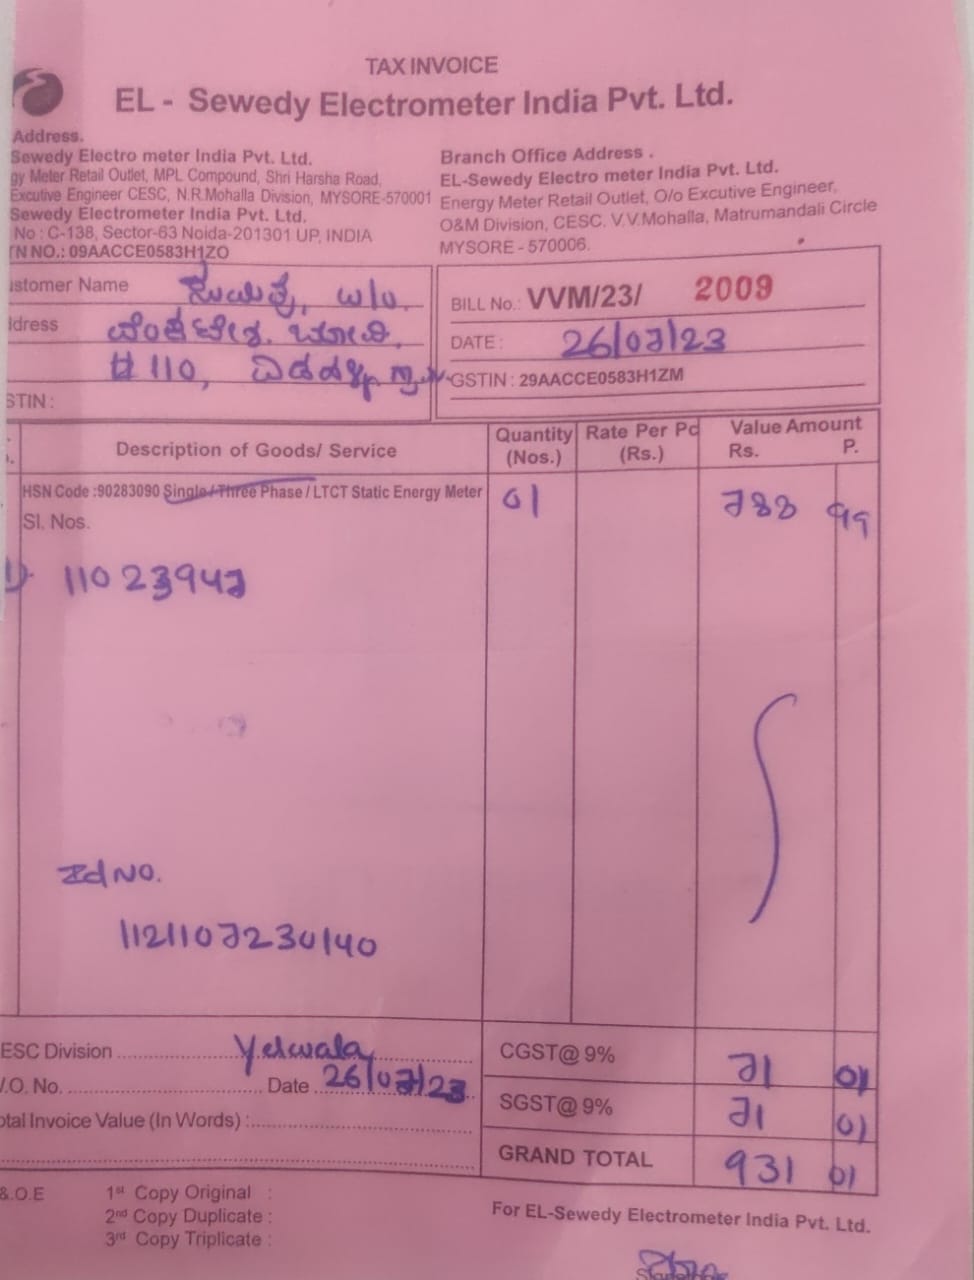 TAX INVOICE
EL - Sewedy Electrometer India Pvt. Ltd.
Address.
Sewedy Electro meter India Pvt. Ltd.
gy Meter Retail Outlet, MPL Compound, Shri Harsha Road,
Excutive Engineer CESC, N.R.Mohalla Division, MYSORE-570001
Sewedy Electrometer India Pvt. Ltd.
No : C-138, Sector-63 Noida-201301 UP, INDIA
TN NO.: 09AACCE0583H1ZO
Branch Office Address .
EL-Sewedy Electro meter India Pvt. Ltd.
Energy Meter Retail Outlet, O/o Excutive Engineer,
O&M Division, CESC. V.V.Mohalla, Matrumandali Circle
MYSORE - 570006.
ustomer Name w/o.
ddress
# 110,
STIN :
BILL No.: VVM/23/ 2009
DATE : 26/07/23
GSTIN : 29AACCE0583H1ZM
Description of Goods/ Service
Quantity (Nos.)
Rate Per Pc (Rs.)
Value Amount
Rs. P.
HSN Code :90283090 Single / Three Phase / LTCT Static Energy Meter 01 788 99
Sl. Nos.
1) 11023947
Rd No.
1121107230140
ESC Division Yelwala
.O. No. Date 26/07/23
otal Invoice Value (In Words) :
CGST@ 9% 71 01
SGST@ 9% 71 01
GRAND TOTAL 931 01
&.O.E
1st Copy Original :
2nd Copy Duplicate :
3rd Copy Triplicate :
For EL-Sewedy Electrometer India Pvt. Ltd.